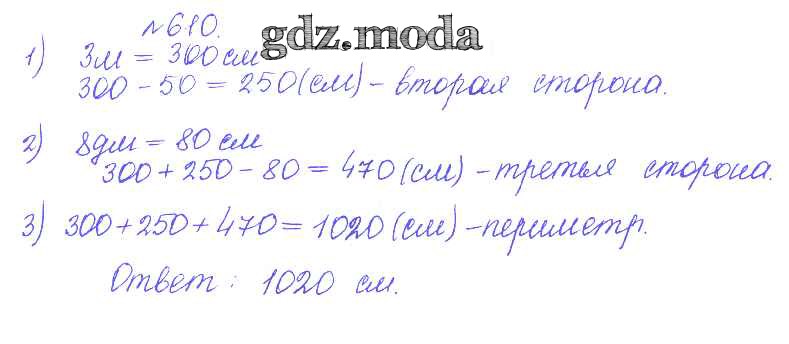 №610.
gdz.moda
1) 3м = 300 см
300 - 50 = 250 (см) - вторая сторона.
2) 8дм = 80 см
300 + 250 - 80 = 470 (см) - третья сторона.
3) 300 + 250 + 470 = 1020 (см) - периметр.
Ответ: 1020 см.